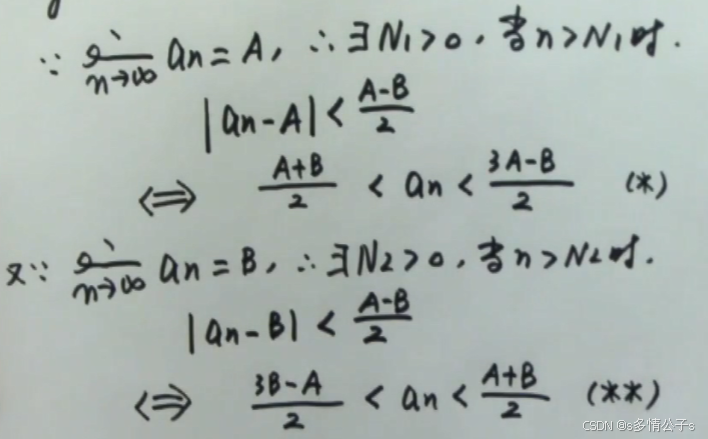 ∵ lim n→∞ an = A, ∴ ∃ N1 > 0, 当 n > N1 时.
|an - A| < (A-B)/2
⇔ (A+B)/2 < an < (3A-B)/2 (*)
又∵ lim n→∞ an = B, ∴ ∃ N2 > 0, 当 n > N2 时.
|an - B| < (A-B)/2
⇔ (3B-A)/2 < an < (A+B)/2 (**)
CSDN @s多情公子s